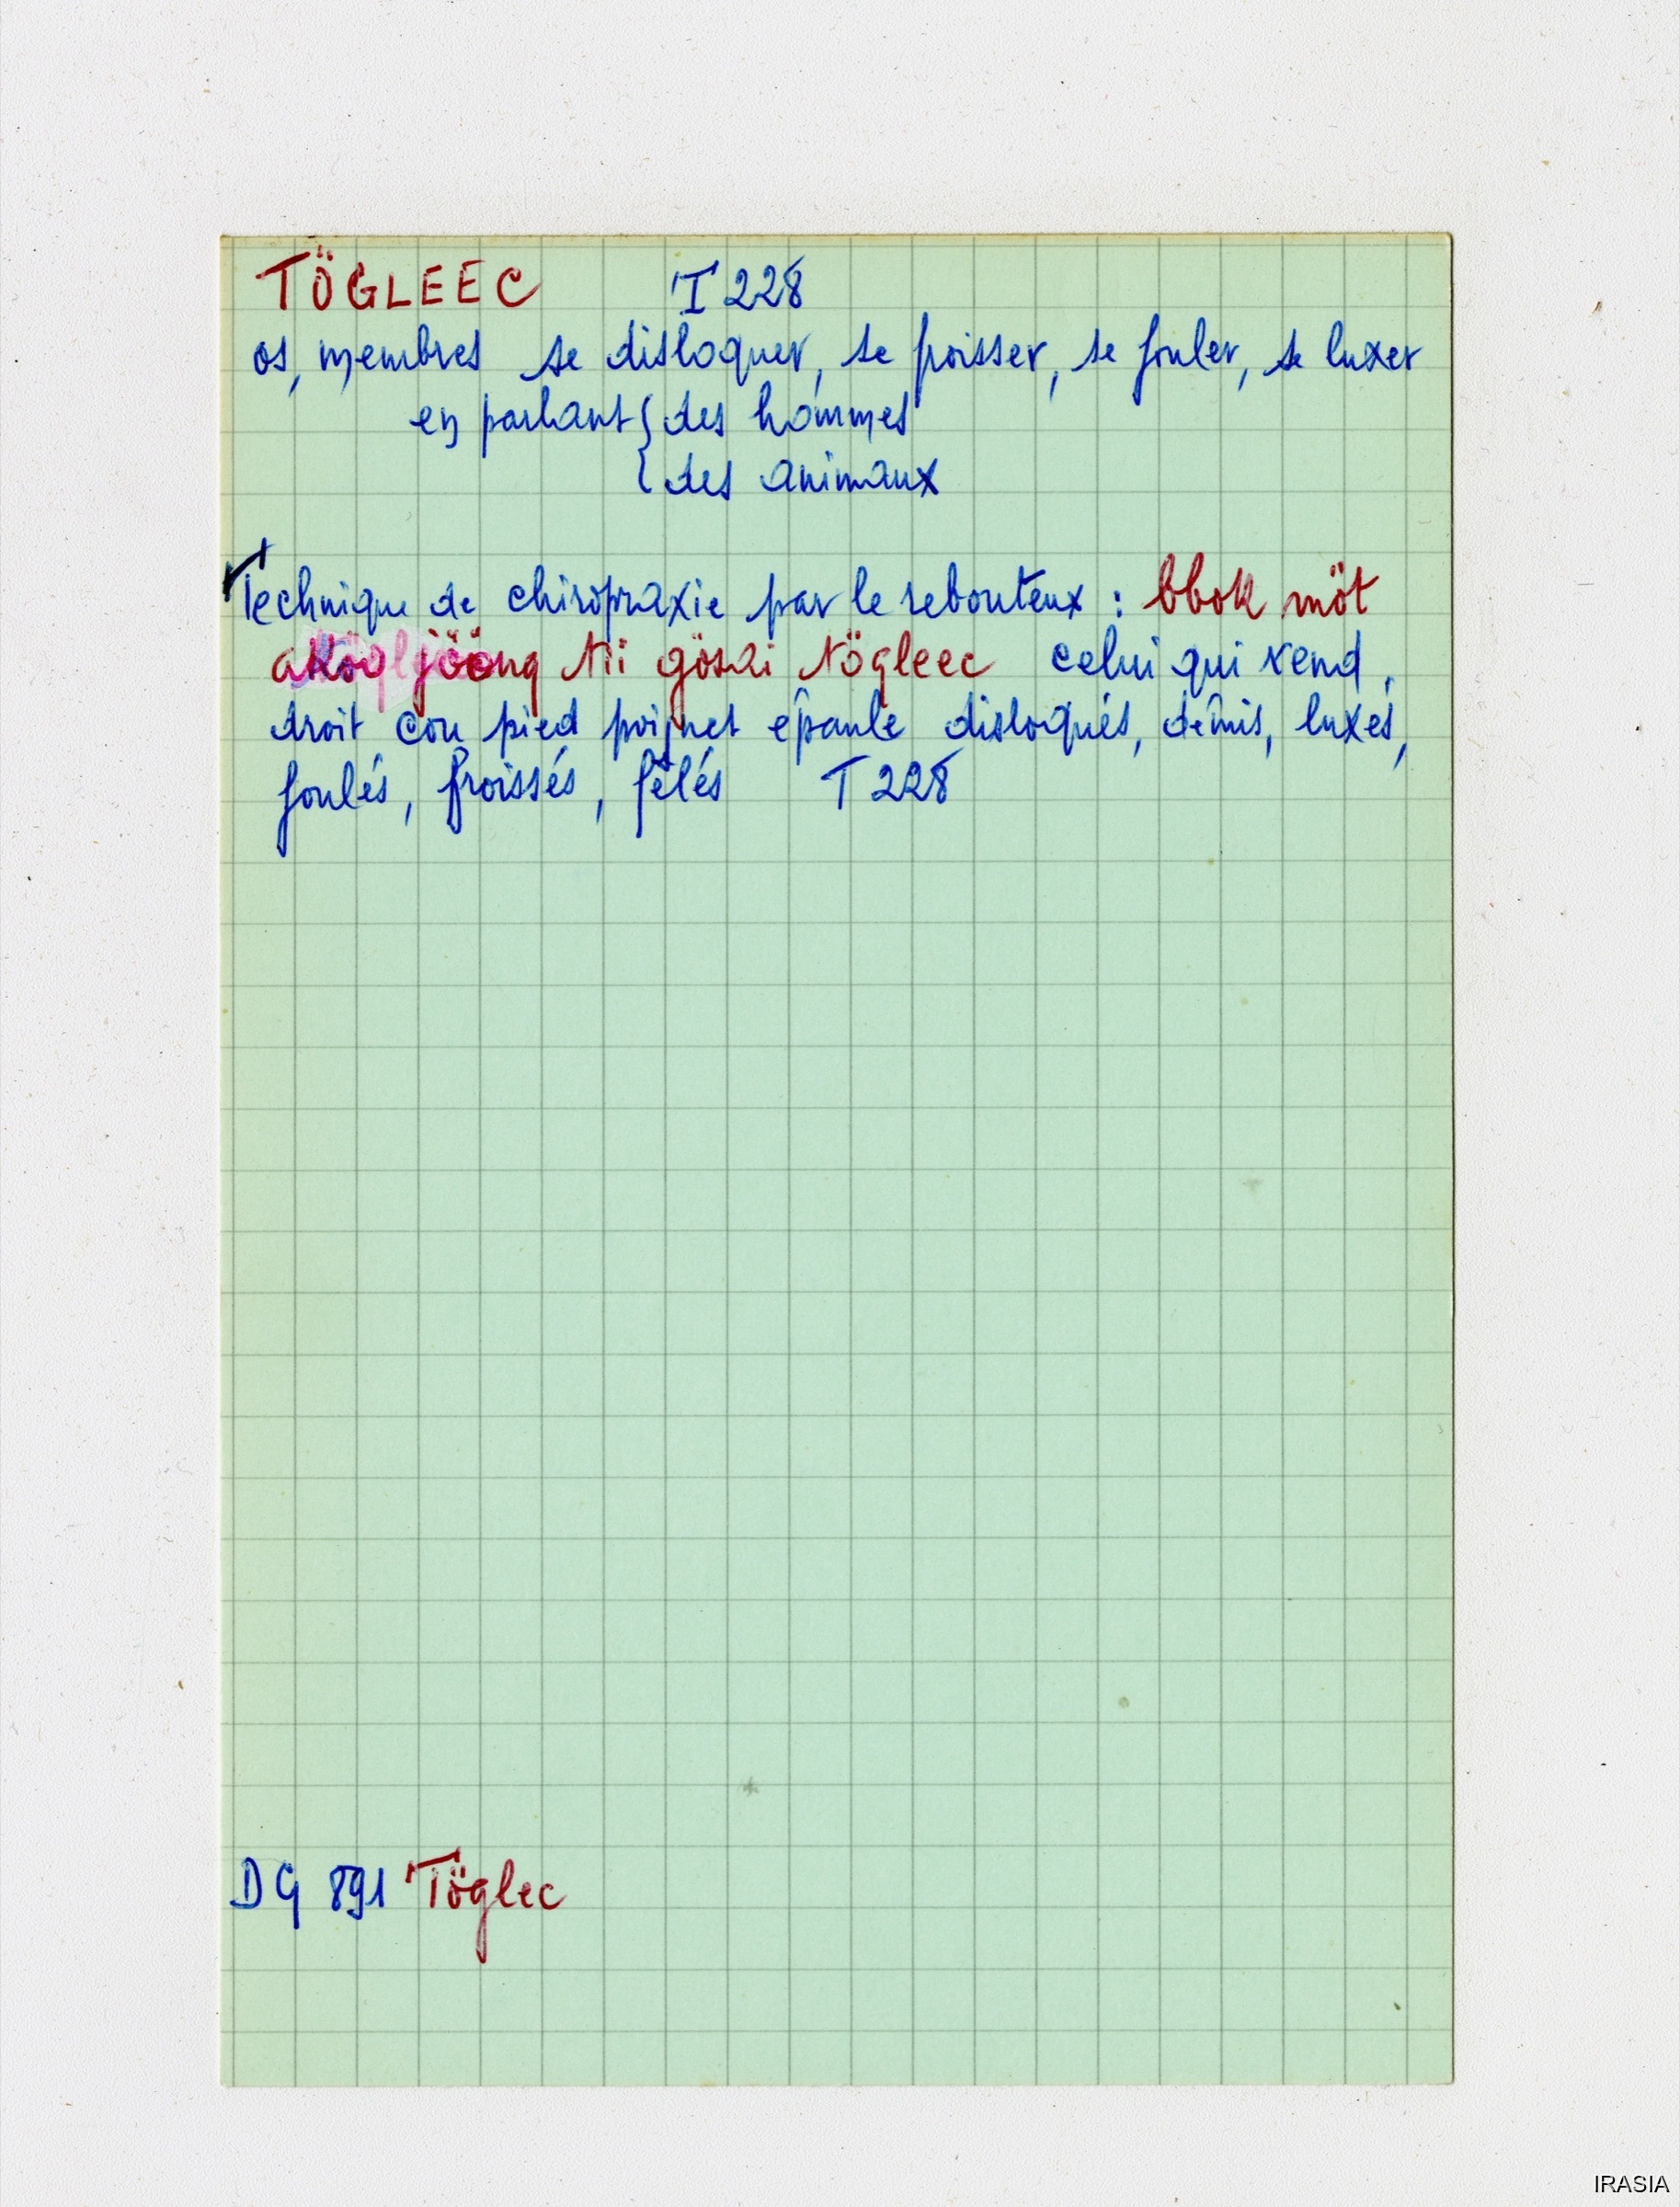 TÖGLEEC T 228
os, membres se disloquer, se froisser, se fouler, se luxer
en parlant { des hommes
{ des animaux
Technique de chiropraxie par le rebouteux : bbok möt
jöông tii gösai tögleec celui qui rend
droit cou pied poignet épaule disloqués, démis, luxés,
foulés, froissés, fêlés T 228
DG 891 Töglec
IRASIA